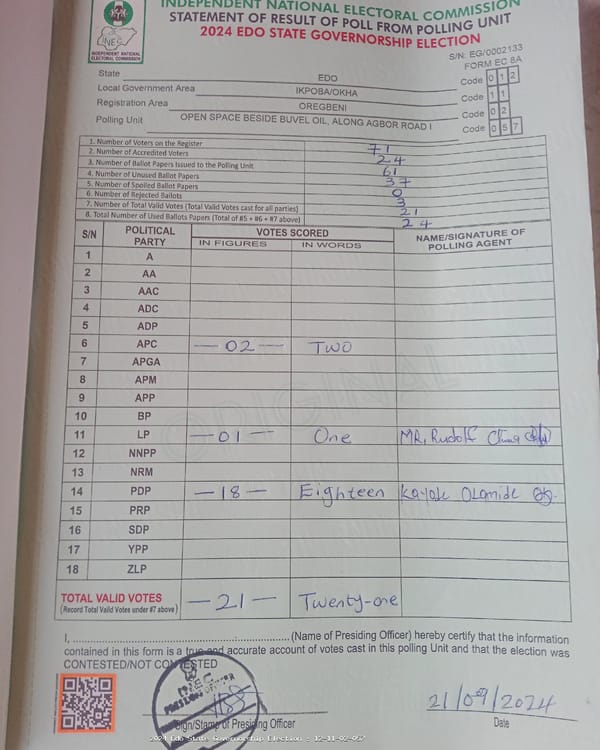 INDEPENDENT NATIONAL ELECTORAL COMMISSION
STATEMENT OF RESULT OF POLL FROM POLLING UNIT
2024 EDO STATE GOVERNORSHIP ELECTION
INEC
INDEPENDENT NATIONAL
ELECTORAL COMMISSION
S/N: EG/0002133
FORM EC 8A
State EDO Code 0 1 2
Local Government Area IKPOBA/OKHA Code 1 1
Registration Area OREGBENI Code 0 2
Polling Unit OPEN SPACE BESIDE BUVEL OIL, ALONG AGBOR ROAD I Code 0 5 7
1. Number of Voters on the Register 71
2. Number of Accredited Voters 24
3. Number of Ballot Papers Issued to the Polling Unit 61
4. Number of Unused Ballot Papers 37
5. Number of Spoiled Ballot Papers 0
6. Number of Rejected Ballots 3
7. Number of Total Valid Votes (Total Valid Votes cast for all parties) 21
8. Total Number of Used Ballots Papers (Total of #5 + #6 + #7 above) 24
S/N POLITICAL PARTY VOTES SCORED NAME/SIGNATURE OF POLLING AGENT
IN FIGURES IN WORDS
1 A
2 AA
3 AAC
4 ADC
5 ADP
6 APC —02— TWO
7 APGA
8 APM
9 APP
10 BP
11 LP —01— One MR, Rudolf
12 NNPP
13 NRM
14 PDP —18— Eighteen Kayode Olamide
15 PRP
16 SDP
17 YPP
18 ZLP
TOTAL VALID VOTES —21— Twenty-one
(Record Total Valid Votes under #7 above)
ORIGINAL
I, ............................................ (Name of Presiding Officer) hereby certify that the information
contained in this form is a true and accurate account of votes cast in this polling Unit and that the election was
CONTESTED/NOT CONTESTED
INEC
Sign/Stamp of Presiding Officer
21/09/2024
Date
2024 Edo State Governorship Election : 12-11-02-057